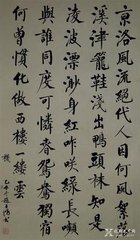 京洛風流絕代人因何風絮落
溪津籠鞋淺出鴉頭襪知是
凌波渺渺身紅乍咲綠長嚬
與誰同度可憐春鴛鴦獨宿
何曾慣化做西樓縷雲